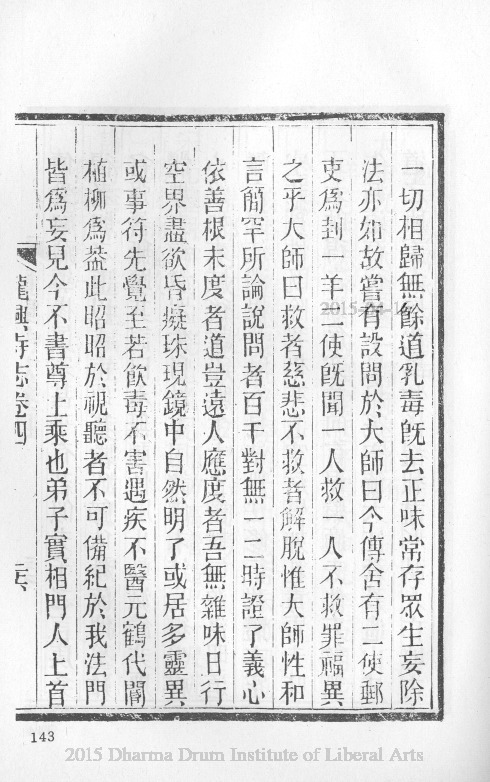 一切相歸無餘道乳毒旣去正味常存眾生妄除
法亦如故嘗有設問於大師曰今傳舍有二使郵
吏爲封一羊二使旣聞一人救一人不救罪福異
之乎大師曰救者慈悲不救者解脫惟大師性和
言簡罕所論說問者百千對無一二時證了義心
依善根未度者道豈遠人應度者吾無雜味日行
空界盡欲昏癡珠現鏡中自然明了或居多靈異
或事符先覺至若飲毒不害遇疾不醫元鶴代闇
植柳爲葢此昭昭於視聽者不可備紀於我法門
皆爲妄見今不書尊上乘也弟子實相門人上首
龍興寺志卷四
143
2015 Dharma Drum Institute of Liberal Arts